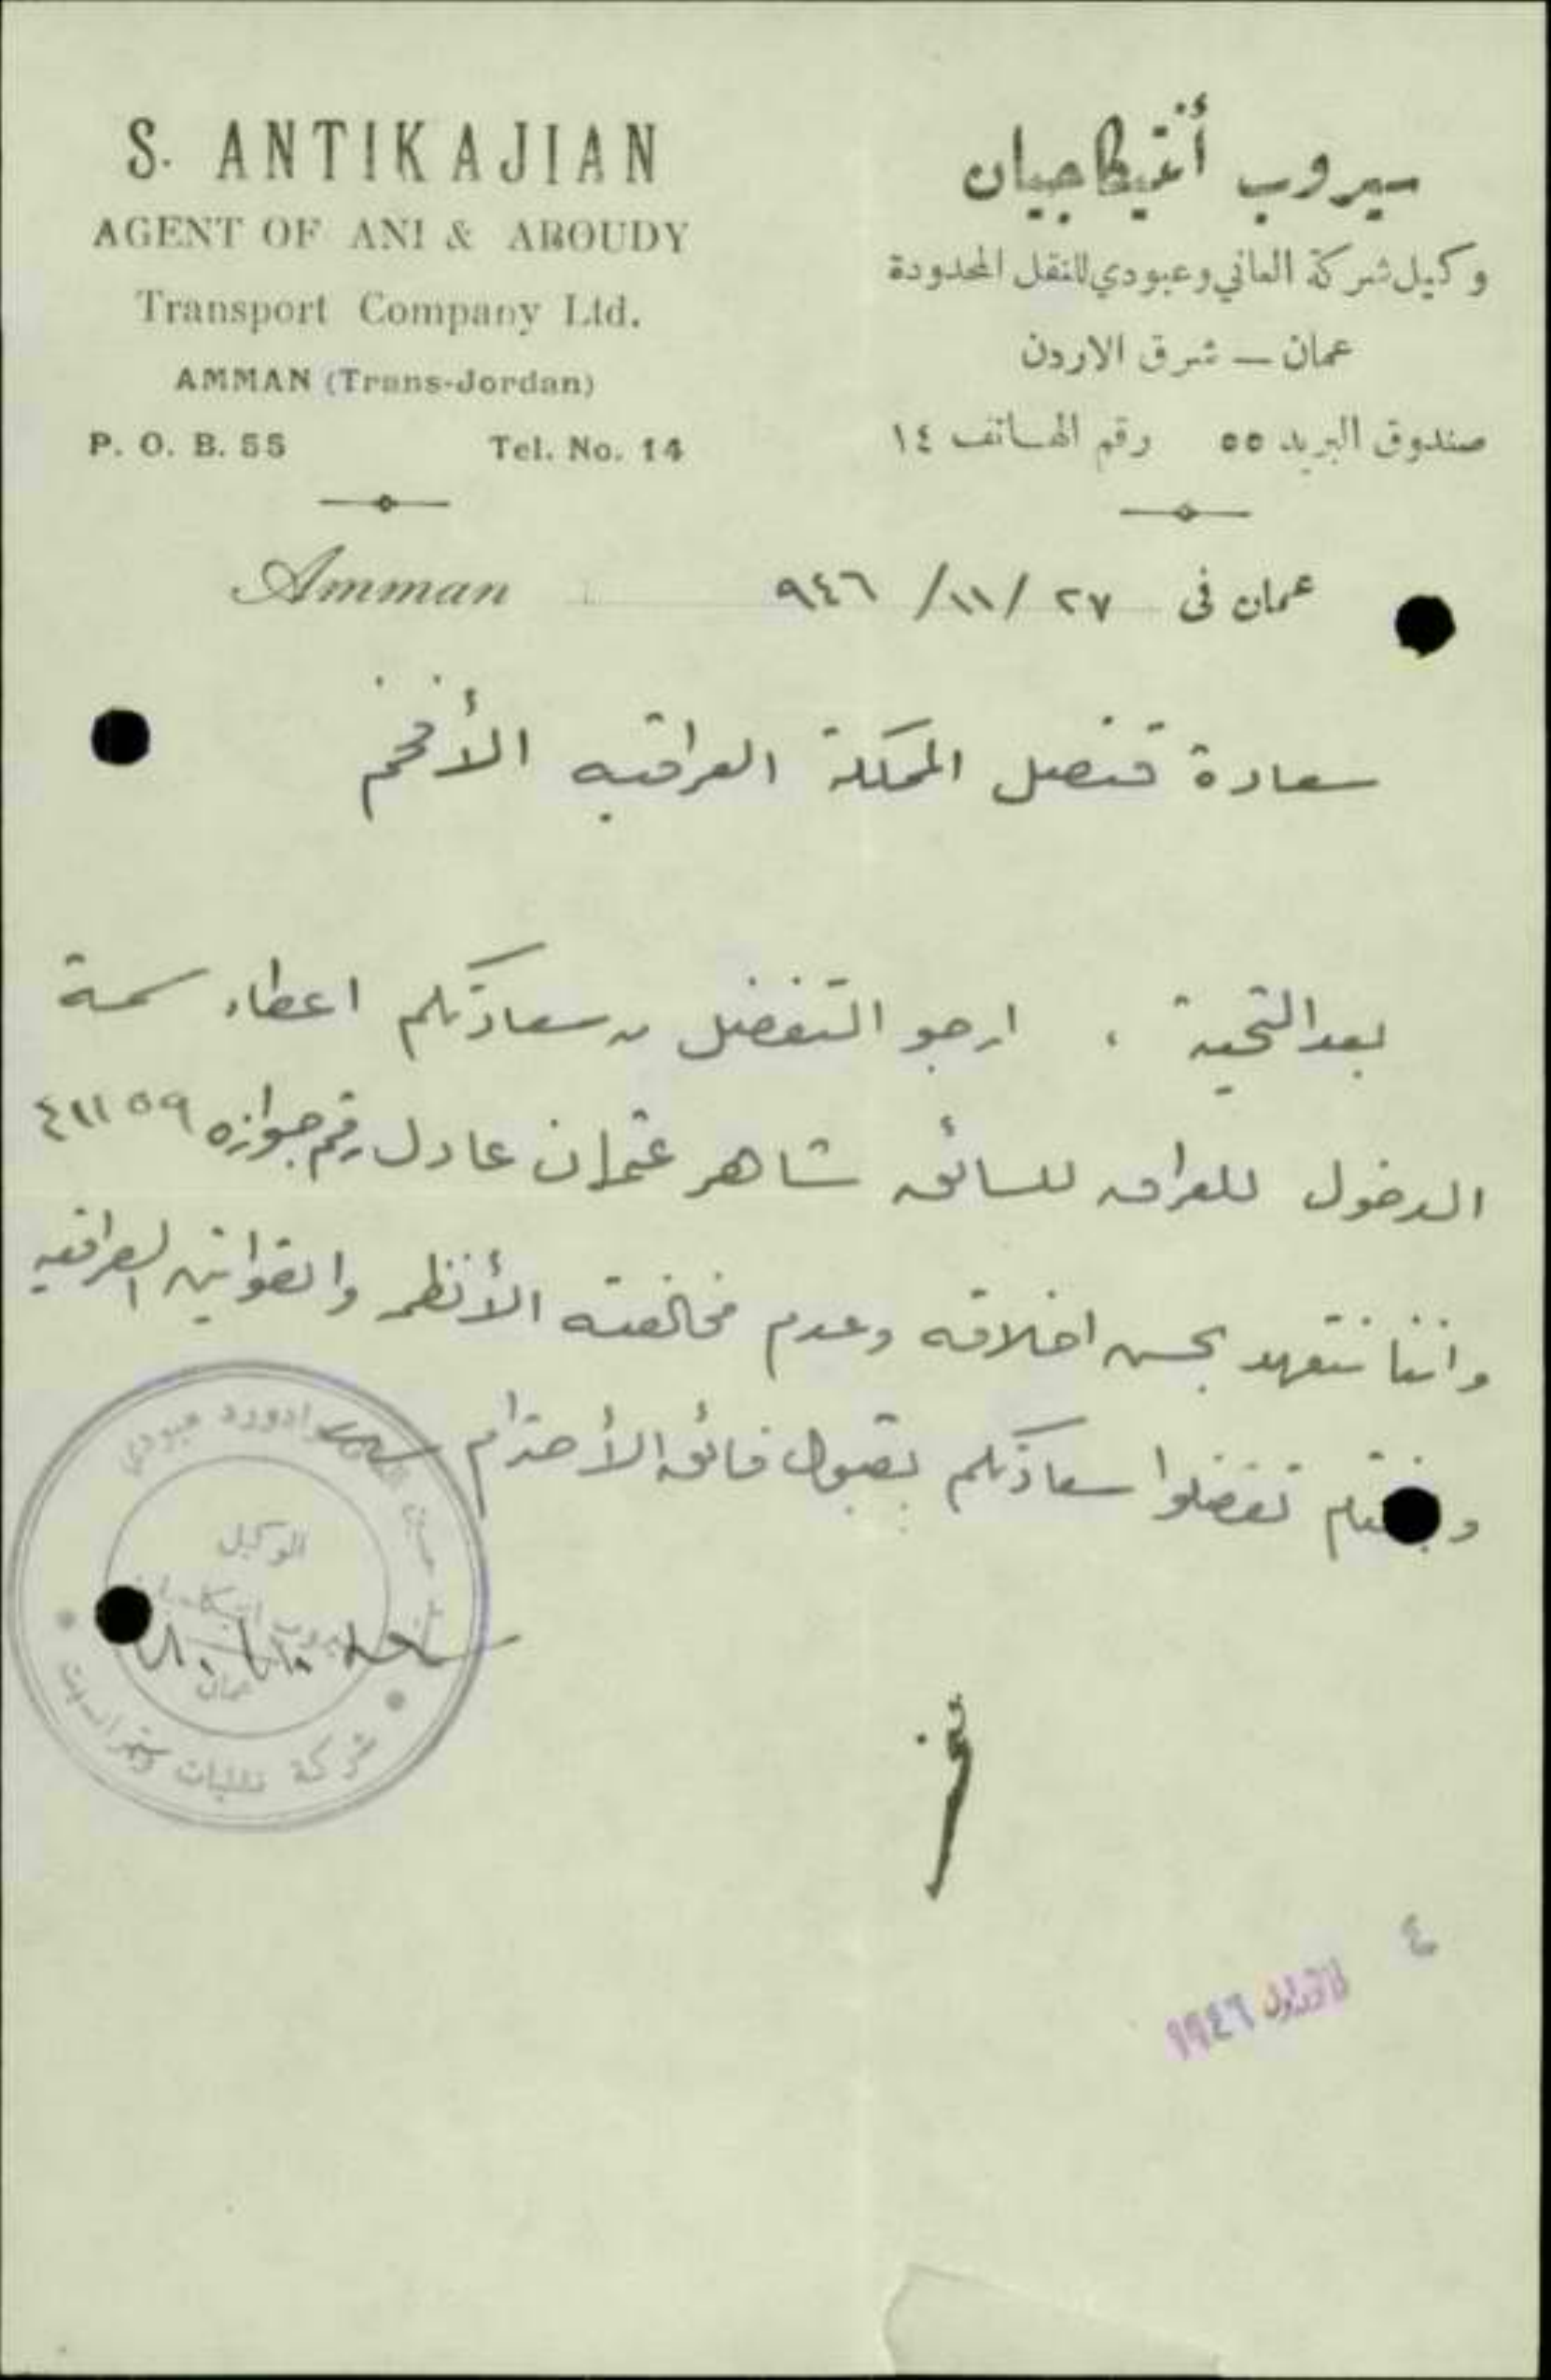 S. ANTIKAJIAN
AGENT OF ANI & ABOUDY
Transport Company Ltd.
AMMAN (Trans-Jordan)
P. O. B. 55 Tel. No. 14
سيروب أنتيكاجيان
وكيل شركة العاني وعبودي للنقل المحدودة
عمان — شرق الاردن
صندوق البريد ٥٥ رقم الهاتف ١٤
Amman
عمان في ٢٧ /١١/ ٩٤٦
سعادة قنصل المملكة العراقيه الأفخم
بعد التحية ، ارجو التفضل من سعادتكم اعطاء سمة
الدخول للعراق للسائق شاهر عثمان عادل رقم جوازه ٤١١١٥٩
واننا نتعهد بحسن اخلاقه وعدم مخالفته الأنظمه والقوانين العراقيه
تفضلوا سعادتكم بقبول فائق الأحترام
وادورد عبودي
الوكيل
عمان
شركة نقليات
٤
١٩٤٦